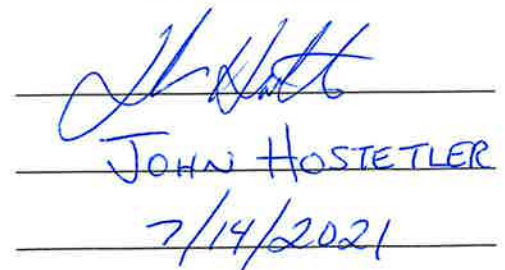 JOHN HOSTETLER
7/14/2021